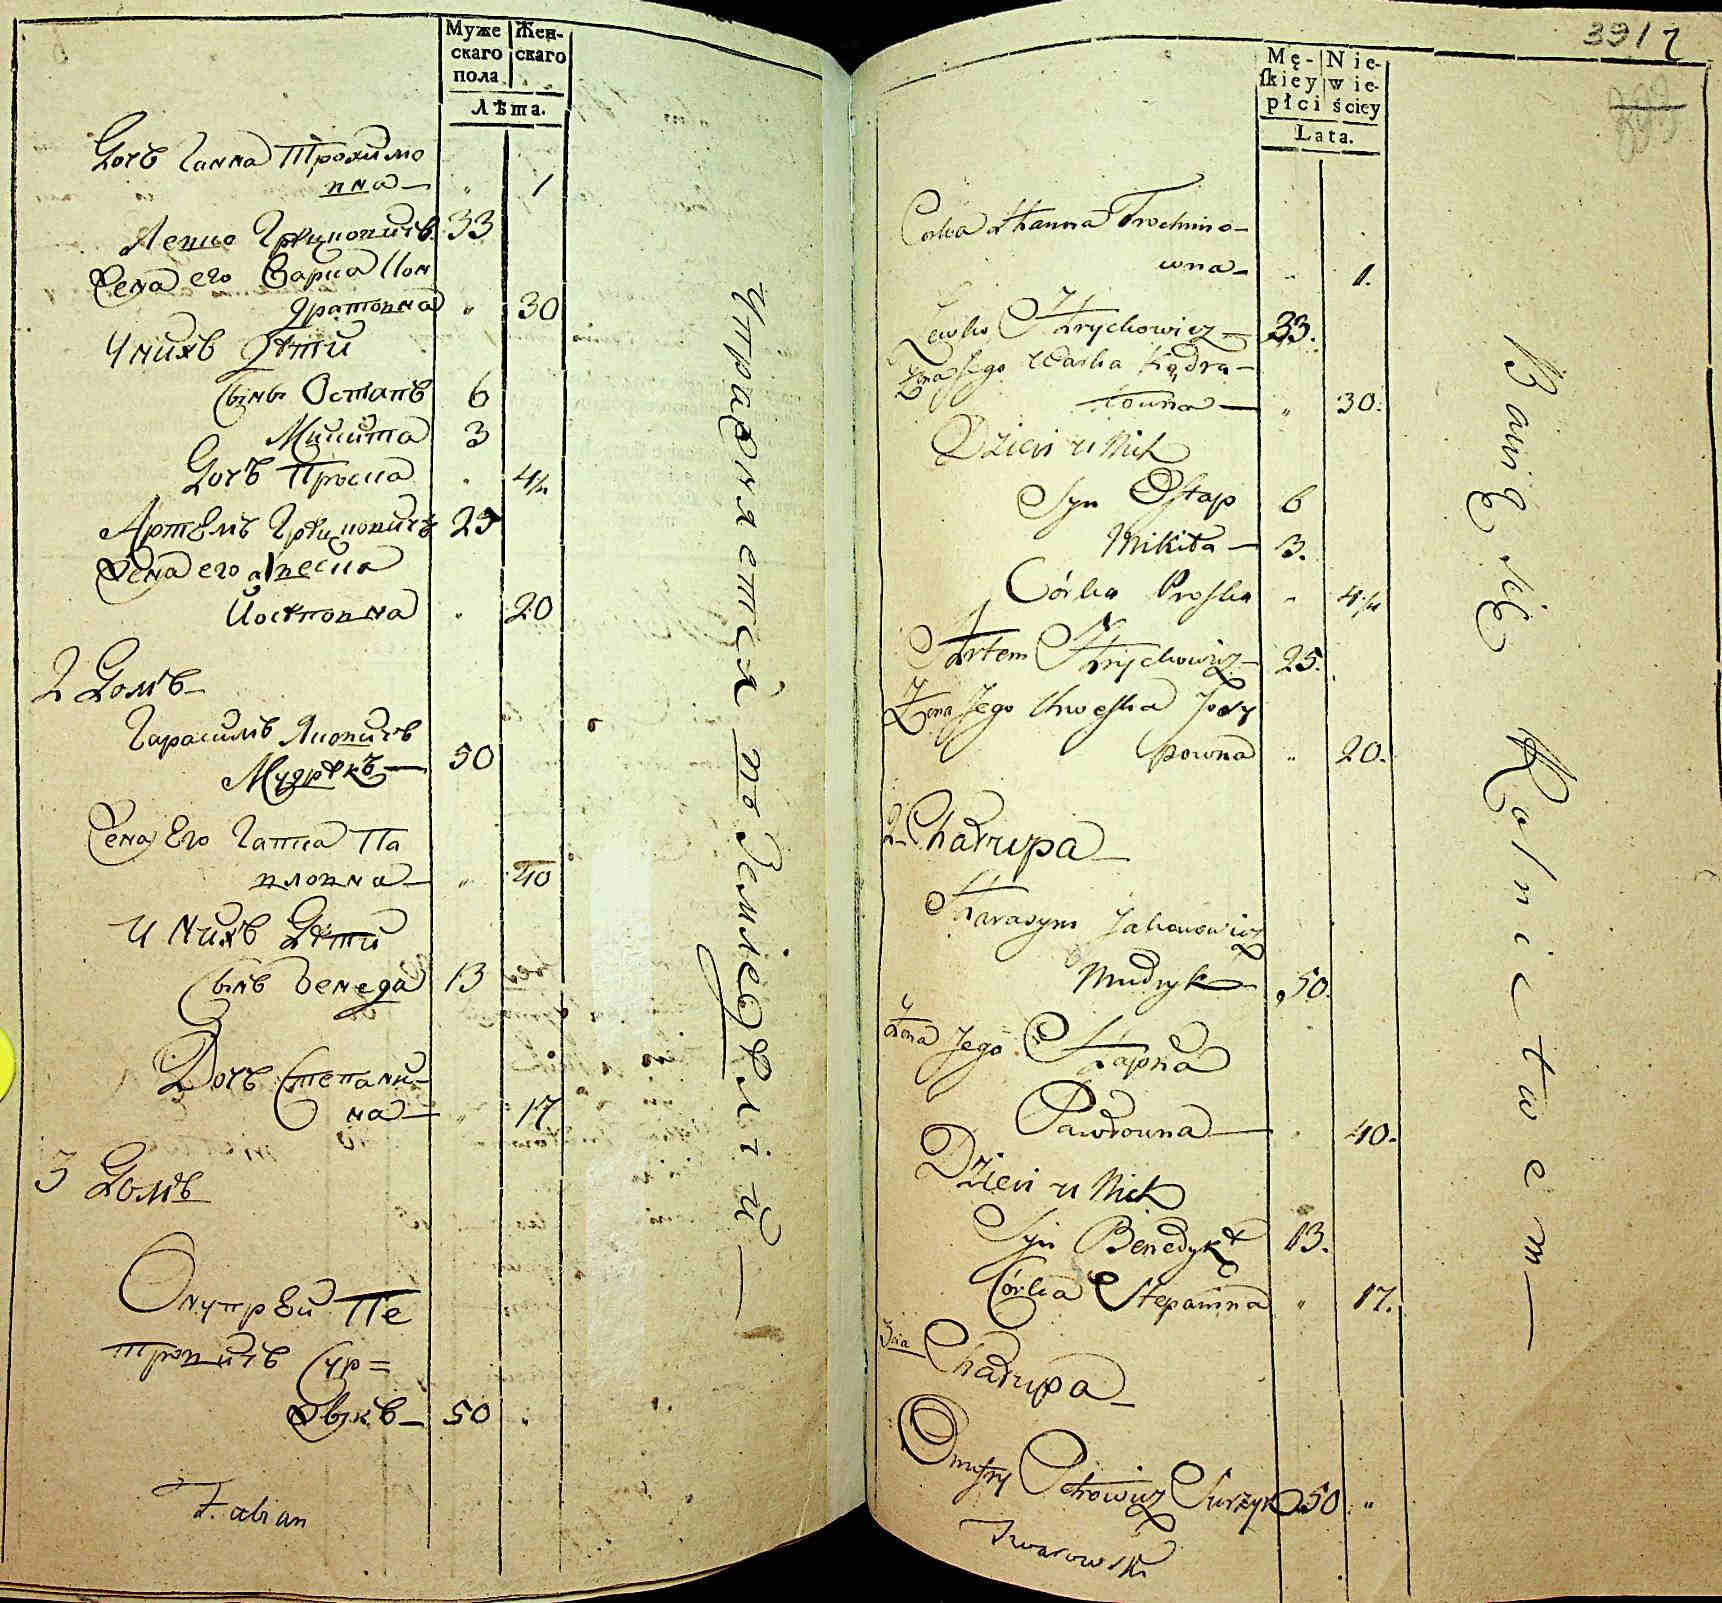 Муже
скаго
пола
Жен-
скаго
Лѣта.
Дочь Ганна Трохимо
вна — „ 1
Левко Грициовичъ 33
Жена его Варка Кон
дратовна „ 30
У нихъ Дѣти
Сынъ Остапъ 6
Микита 3
Дочь Проска „ 4/м
Артемъ Грициовичъ 25
Жена его Хвеска
Йосѣповна „ 20
2 Домъ —
Гарасимъ Яковичъ
Мудрѣкъ — 50
Жена Его Гапка Па
вловна — „ 40
У нихъ Дѣти
Сынъ Бенеда 13
Дочь Степани-
на — „ 17
3 Домъ
Онупрей Пе
тровичъ Сур=
жѣкъ — 50 „
Fabian
Упражняется по Земледѣлій —
391
Mę-
skiey
płci
Nie-
wie-
ściey
Lata.
Corka Hanna Trochimo-
wna — „ 1.
Lewko Hrychowicz — 33.
Żona Jego Warka Kądra-
towna — „ 30.
Dzieci u Nich
Syn Ostap 6
Mikita — 3.
Córka Proska „ 4/м
Artem Hrychowicz — 25.
Żona Jego Chweska Jozy
powna „ 20.
2 Chałupa —
Harasym Jakowowicz
Mudryk — 50.
Żona Jego Hapka
Pawłowna — „ 40.
Dzieci u Nich
Syn Benedykt 13.
Córka Stepanina „ 17.
3cia Chałupa —
Onufry Petrowicz Surżyk 50 „
Iwanowski
Bawię się Rolnictwem —